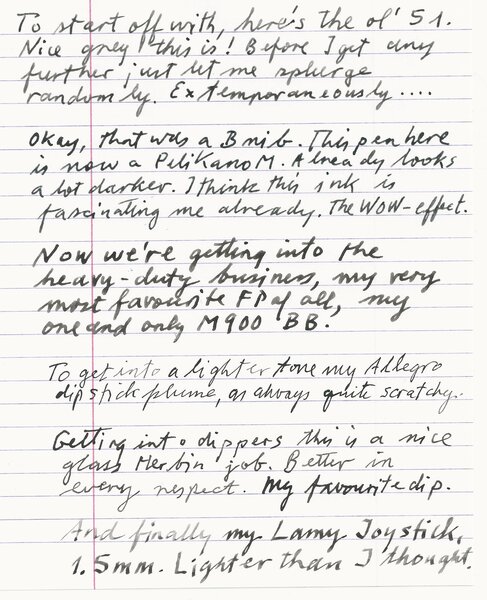 To start off with, here's the ol' 51.
Nice grey this is! Before I get any
further just let me splurge
randomly. Extemporaneously....
Okay, that was a B nib. This pen here
is now a Pelikano M. Already looks
a lot darker. I think this ink is
fascinating me already. The WOW-effect.
Now we're getting into the
heavy-duty business, my very
most favourite FP of all, my
one and only M900 BB.
To get into a lighter tone my Allegro
dip stick plume, as always quite scratchy.
Getting into dippers this is a nice
glass Herbin job. Better in
every respect. My favourite dip.
And finally my Lamy Joystick,
1.5mm. Lighter than I thought.